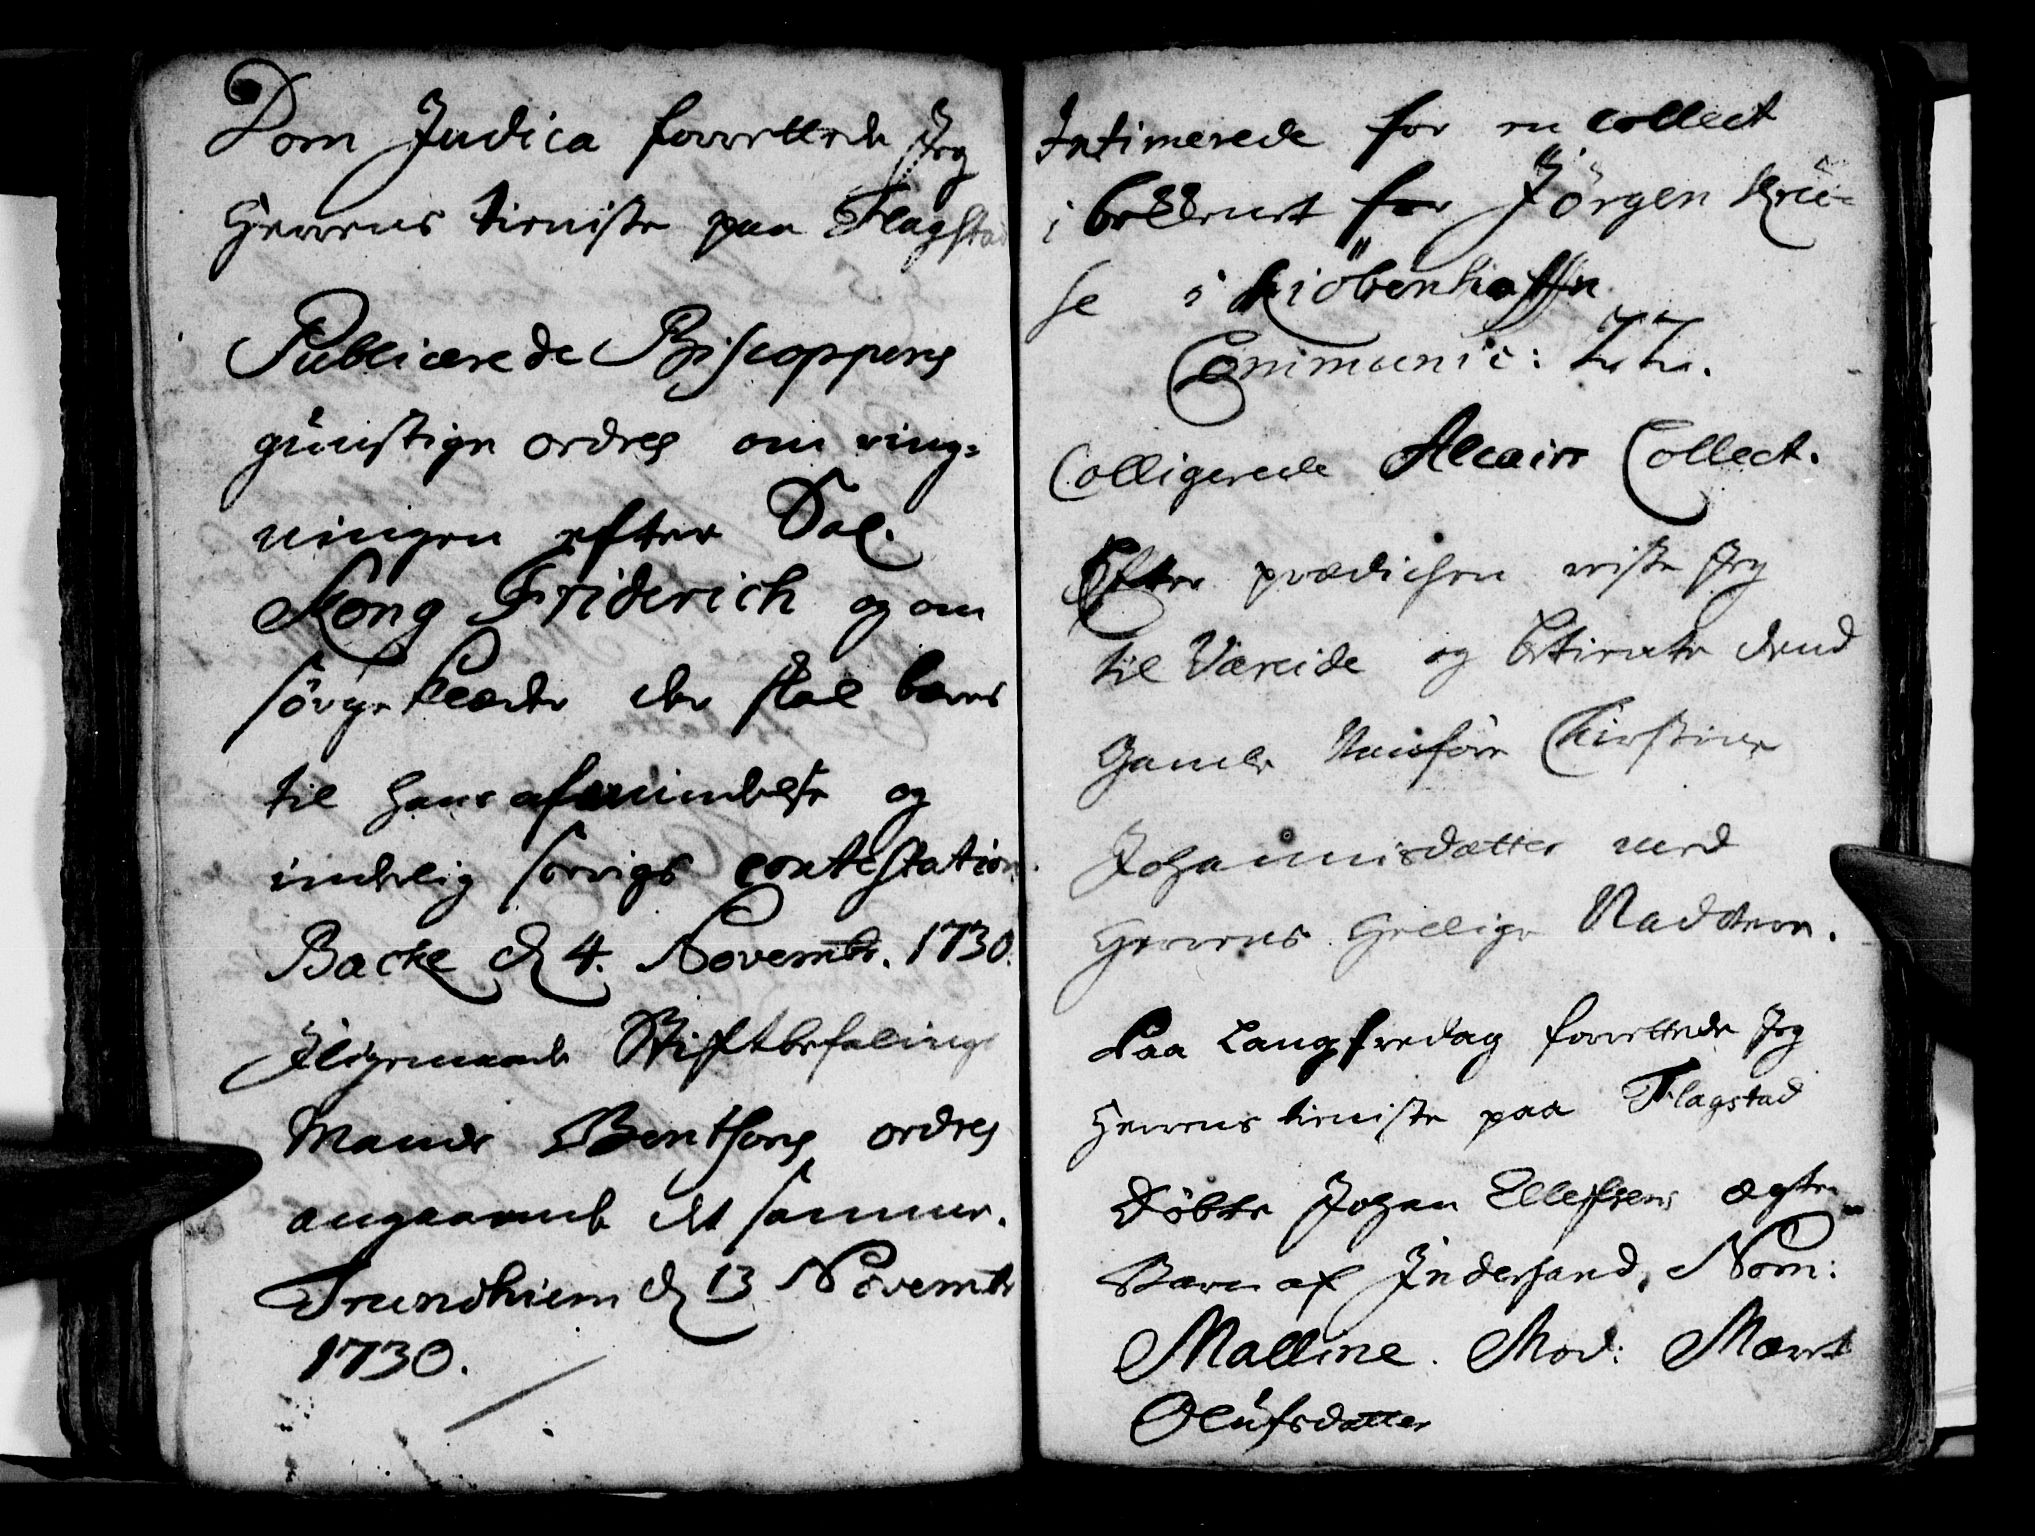 Dom Judica forrettede Jeg
Herrens tieniste paa Flagstad
Publicerede Biscoppens
günstige ordres om ring-
ningen efter Sal.
Kong Friderich og om
sörge klæder der skal bæres
til hans afmindelse og
inderlig sorrigs contestation
Backe d 4. Novembr. 1730.
Iligemaade Stiftbefalings
Mands Bentsons ordres
angaaende det samme.
Trundhiem d 13 Novembr
1730.
Intimerede for en collect
i beddenet for Jörgen Krü-
se i Kiöbenhaffn.
Communic: 77.
Colligerede Collect.
Efter prædichen reiste Jeg
til Væreide og betiente dend
Gamle Vanföre Chirstine
Johannisdatter med
Herrens Hellige Nadvere.
Paa Langfredag forrettede Jeg
Herrens tieniste paa Flagstad
Döbte Johan Ellefsens ægte
Barn af Indersand, Nom:
Malline. Mod: Maret
Olüfsdatter